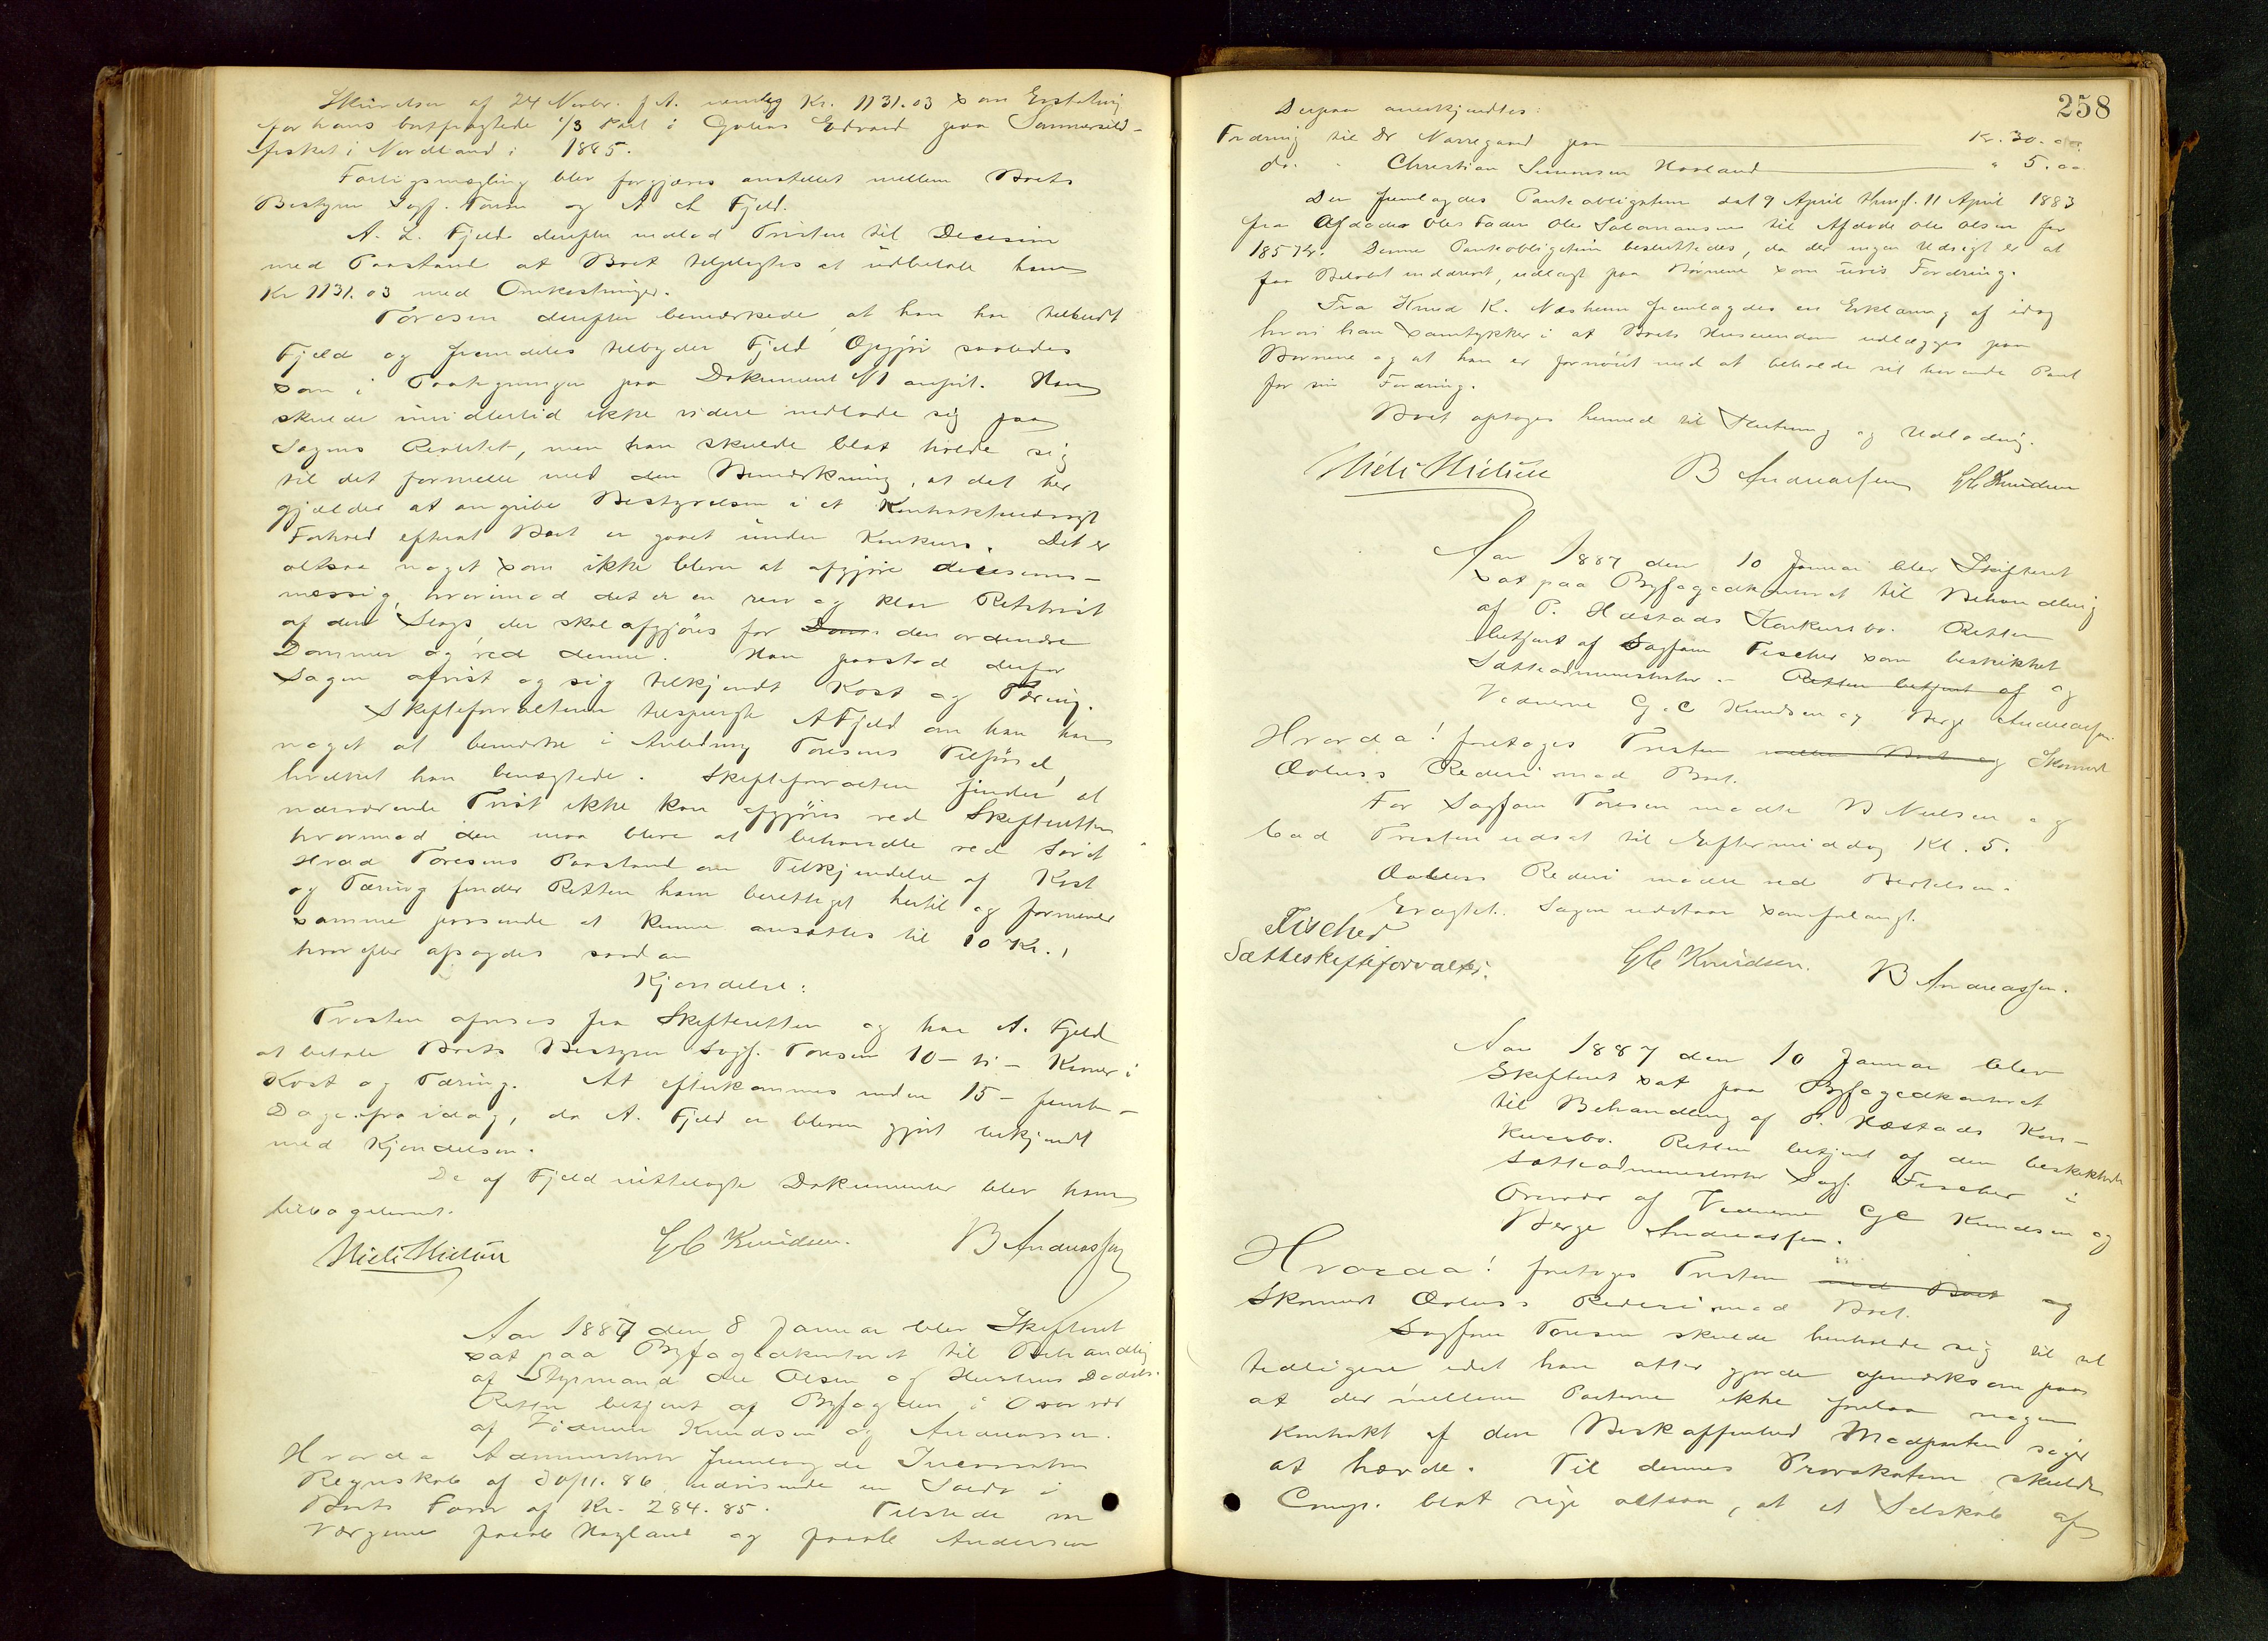 Skrivelse af 24 Novbr. f. A. nemlig Kr. 1131.03 som Erstatning
for hans bortfragtede 1/3 Part i Galeas Edvard paa Sommersild-
fisket i Nordland i 1885.
Forligsmægling blev forgjæves anstillet mellem Boets
Bestyrer Sagf. Toresen og A L Fjeld.
A. L. Fjeld derefter indlod Tvisten til Decision
med Paastand at Boet tilpligtes at udbetale ham
Kr 1131.03 med Omkostninger.
Toresen derefter bemærkede, at han har tilbudt
Fjeld og fremdeles tilbyder Fjeld Opgjør saaledes
som i Paategningen paa Dokument N1 anført. Han
skulde imidlertid ikke videre indlade sig paa
Sagens Realitet, men han skulde blot holde sig
til det formelle med den Bemærkning, at det her
gjælder at angribe Bestyrelsen i et Kontraktmæssigt
Forhold efterat Boet er gaaet under Konkurs. Det er
altsaa noget som ikke bliver at afgjøre decisions-
mæssig, hvorimod det er en ren og klar Retstvist
af den Slags, der skal afgjøres for Dom den ordinære
Dommer og ved denne. Han paastod derfor
Sagen afvist og sig tilkjendt Kost og Tæring.
Skifteforvalteren tilspurgte A Fjeld om han har
noget at bemærke i Anledning Toresens Tilførsel,
hvilket han benægtede. Skifteforvalteren finder at
nærværende Tvist ikke kan afgjøres ved Skifteretten
hvorimod den maa blive at behandle ved
Hvad Toresens Paastand om Tilkjendelse af Kost
og Tæring finder Retten ham berettiget hertil og formener
samme passende at kunne ansættes til 10 Kr.,
hvorefter afsagdes saadan
Kjendelse:
Tvisten afvises fra Skifteretten og har A. Fjeld
at betale Boets Bestyrer Sagf. Toresen 10 - ti - Kroner i
Kost og Tæring. At efterkommes inden 15 - femten -
Dage fra idag, da A. Fjeld er bleven gjort bekjendt
med Kjendelsen.
De af Fjeld irettelagte Dokumenter blev ham
tilbageleveret.
Niels Nielsen GC Knudsen. B Andreassen
Aar 1887 den 8 Januar blev Skifteret
sat paa Byfogedkontoret til Behandling
af Styrmand Ole Olsen og Hustrus Dødsbo.
Retten betjent af Byfogden i Overvær
af Vidnerne Knudsen og Andreassen.
Hvorda Administrator fremlagde
Regnskab af 30/11. 86 udvisende en Saldo i
Boets Favør af Kr. 284.85. Tilstede var
Værgerne Hagland og Andersen
258
Derpaa anerkjendtes:
Fordring til Dr Nørregaard paa Kr. 30.00
do. " Christian Simonsen Hovland " 5.00
Der fremlagdes Panteobligation dat 9 April thingl. 11 April 1883
fra Afdødes Oles Fader Ole Salamonsen til Afdøde Ole Olsen for
185 Kr. Denne Panteobligation besluttedes, da der ingen Udsigt er at
faa Beløbet inddrevet, udlagt paa Børnene som uvis Fordring.
Fra Knud K. Næsheim fremlagdes en Erklæring af idag
hvori han samtykker i at Boets Huseiendom udlægges paa
Børnene og at han er fornøiet med at beholde sit havende Pant
for sin Fordring.
Boet optages hermed til Slutning og Udlodning.
Niels Nielsen B Andreassen GC Knudsen
Aar 1887 den 10 Januar blev Skifteret
sat paa Byfogedkontoret til Behandling
af P. Hæstads Konkursbo. Retten
betjent af Sagfører Fischer som beskikket
Sætteadministrator. - Retten betjent af og
Vidnerne G. C Knudsen og Berge Andreassen.
Hvorda! foretoges Tvisten mellem Boet og Skonnert
Æoluss Rederi mod Boet.
For Sagfører Toresen mødte B Nielsen og
bad Tvisten udsat til Eftermiddag Kl. 5.
Æoluss Rederi mødte ved Bertelsen.
Eragtet. Sagen udstaar som forlangt.
Fischer
Sætteskifteforvalter. GC Knudsen. B Andreassen.
Aar 1887 den 10 Januar blev
Skifteret sat paa Byfogedkontoret
til Behandling af P. Hæstads Kon-
kursbo. Retten betjent af den beskikkede
Sætteadministrator Sagf. Fischer i
Overvær af Vidnerne GC Knudsen og
Berge Andreassen.
Hvorda! foretoges Tvisten med Boet og
Skonnert Æoluss Rederi mod Boet.
Sagfører Toresen skulde henholde sig til sit
tidligere idet han atter gjorde opmærksom paa
at der mellem Parterne ikke forelaa nogen
Kontrakt af den Beskaffenhed Modparten søger
at hævde. Til dennes Provokation skulde
Comp. blot sige altsaa, at et Selskab af